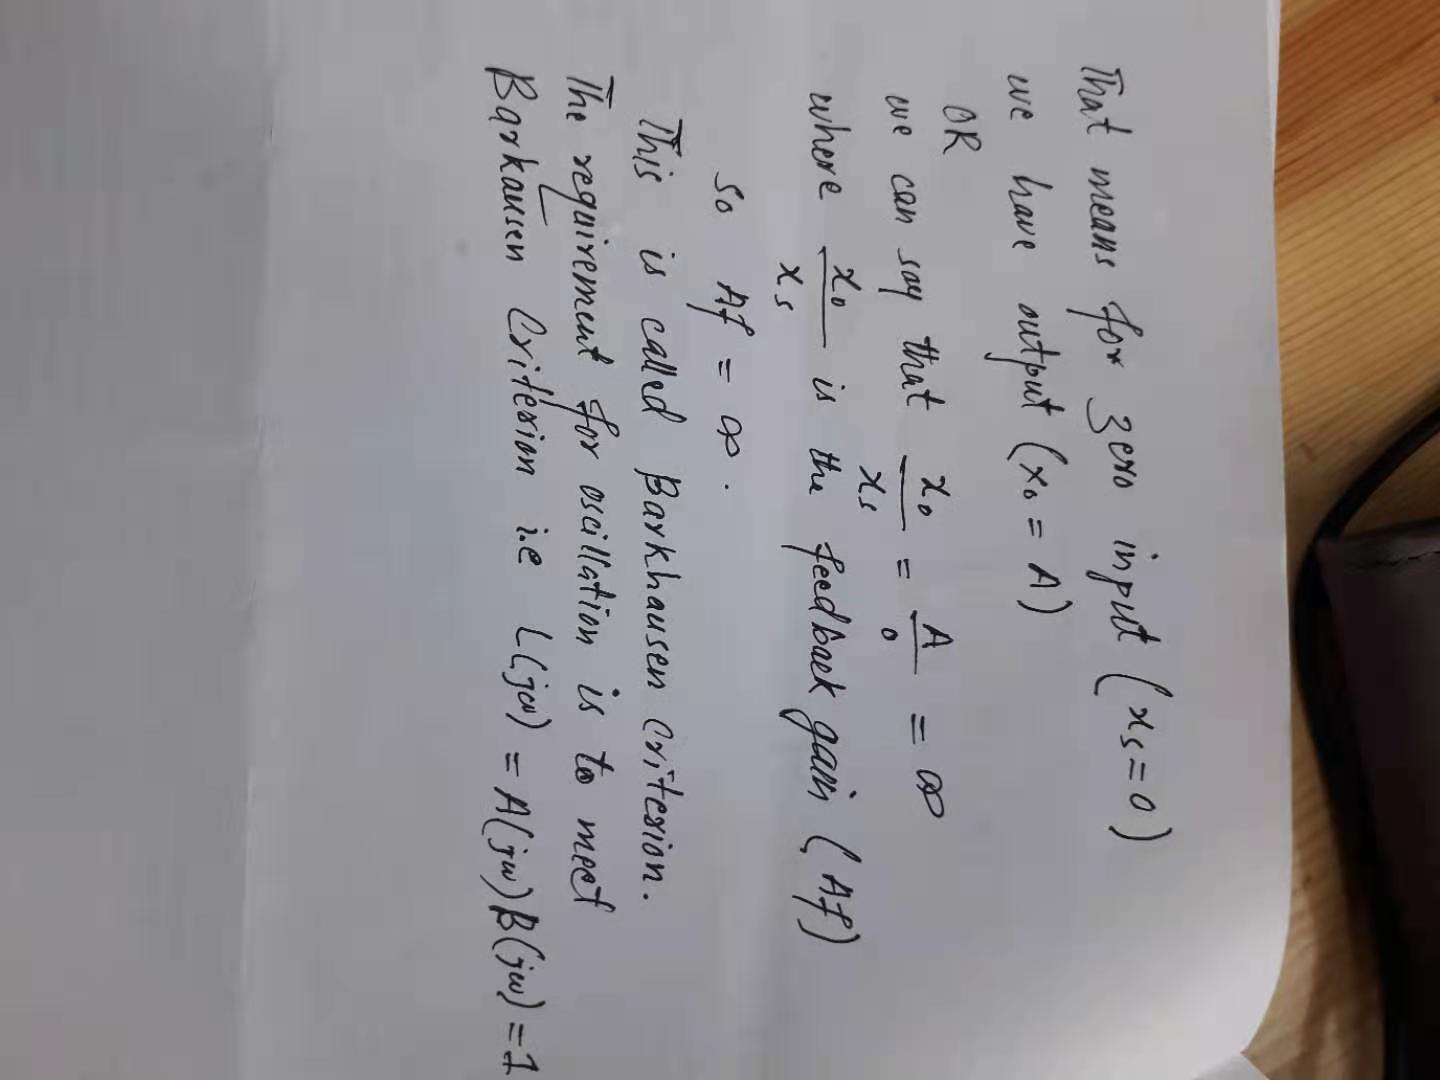 That means for zero input (xs = 0)
we have output (x₀ = A)
OR
we can say that x₀/xs = A/0 = ∞
where x₀/xs is the feedback gain (Af)
So Af = ∞.
This is called Barkhausen Criterion.
The requirement for oscillation is to meet
Barkausen Criterion i.e L(jω) = A(jω)B(jω) = 1